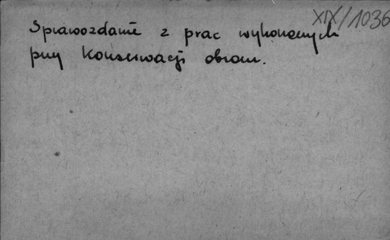 XIX/1036
Sprawozdanie z prac wykonanych
przy konserwacji obrazu.